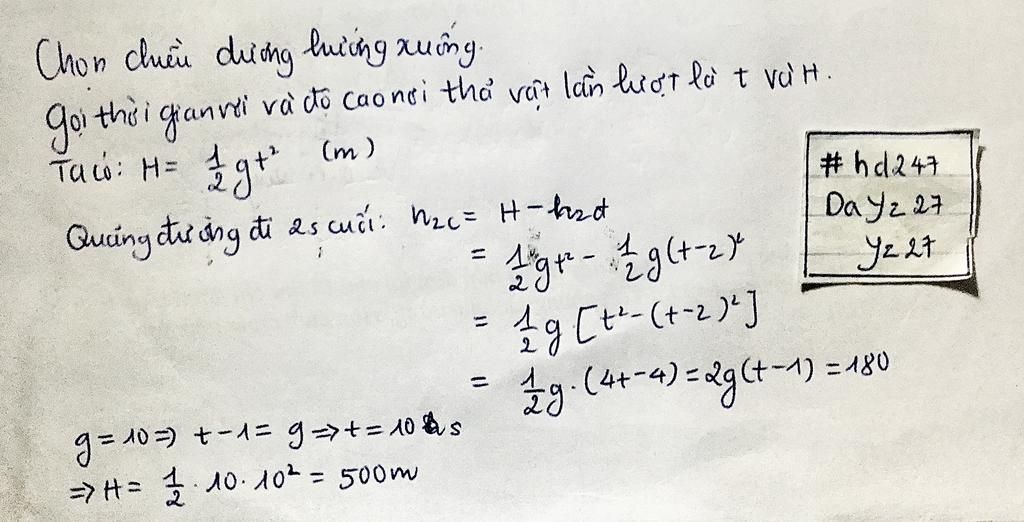 Chọn chiều dương hướng xuống.
Gọi thời gian rơi và độ cao nơi thả vật lần lượt là t và H.
Ta có: H = 1/2 gt² (m)
Quãng đường đi 2s cuối: h2c = H - h2đ
= 1/2 gt² - 1/2 g(t-2)²
= 1/2 g [t² - (t-2)²]
= 1/2 g. (4t-4) = 2g(t-1) = 180
g = 10 => t-1 = 9 => t = 10 s
=> H = 1/2 . 10. 10² = 500m
# hd247
DaYz 27
Yz 27